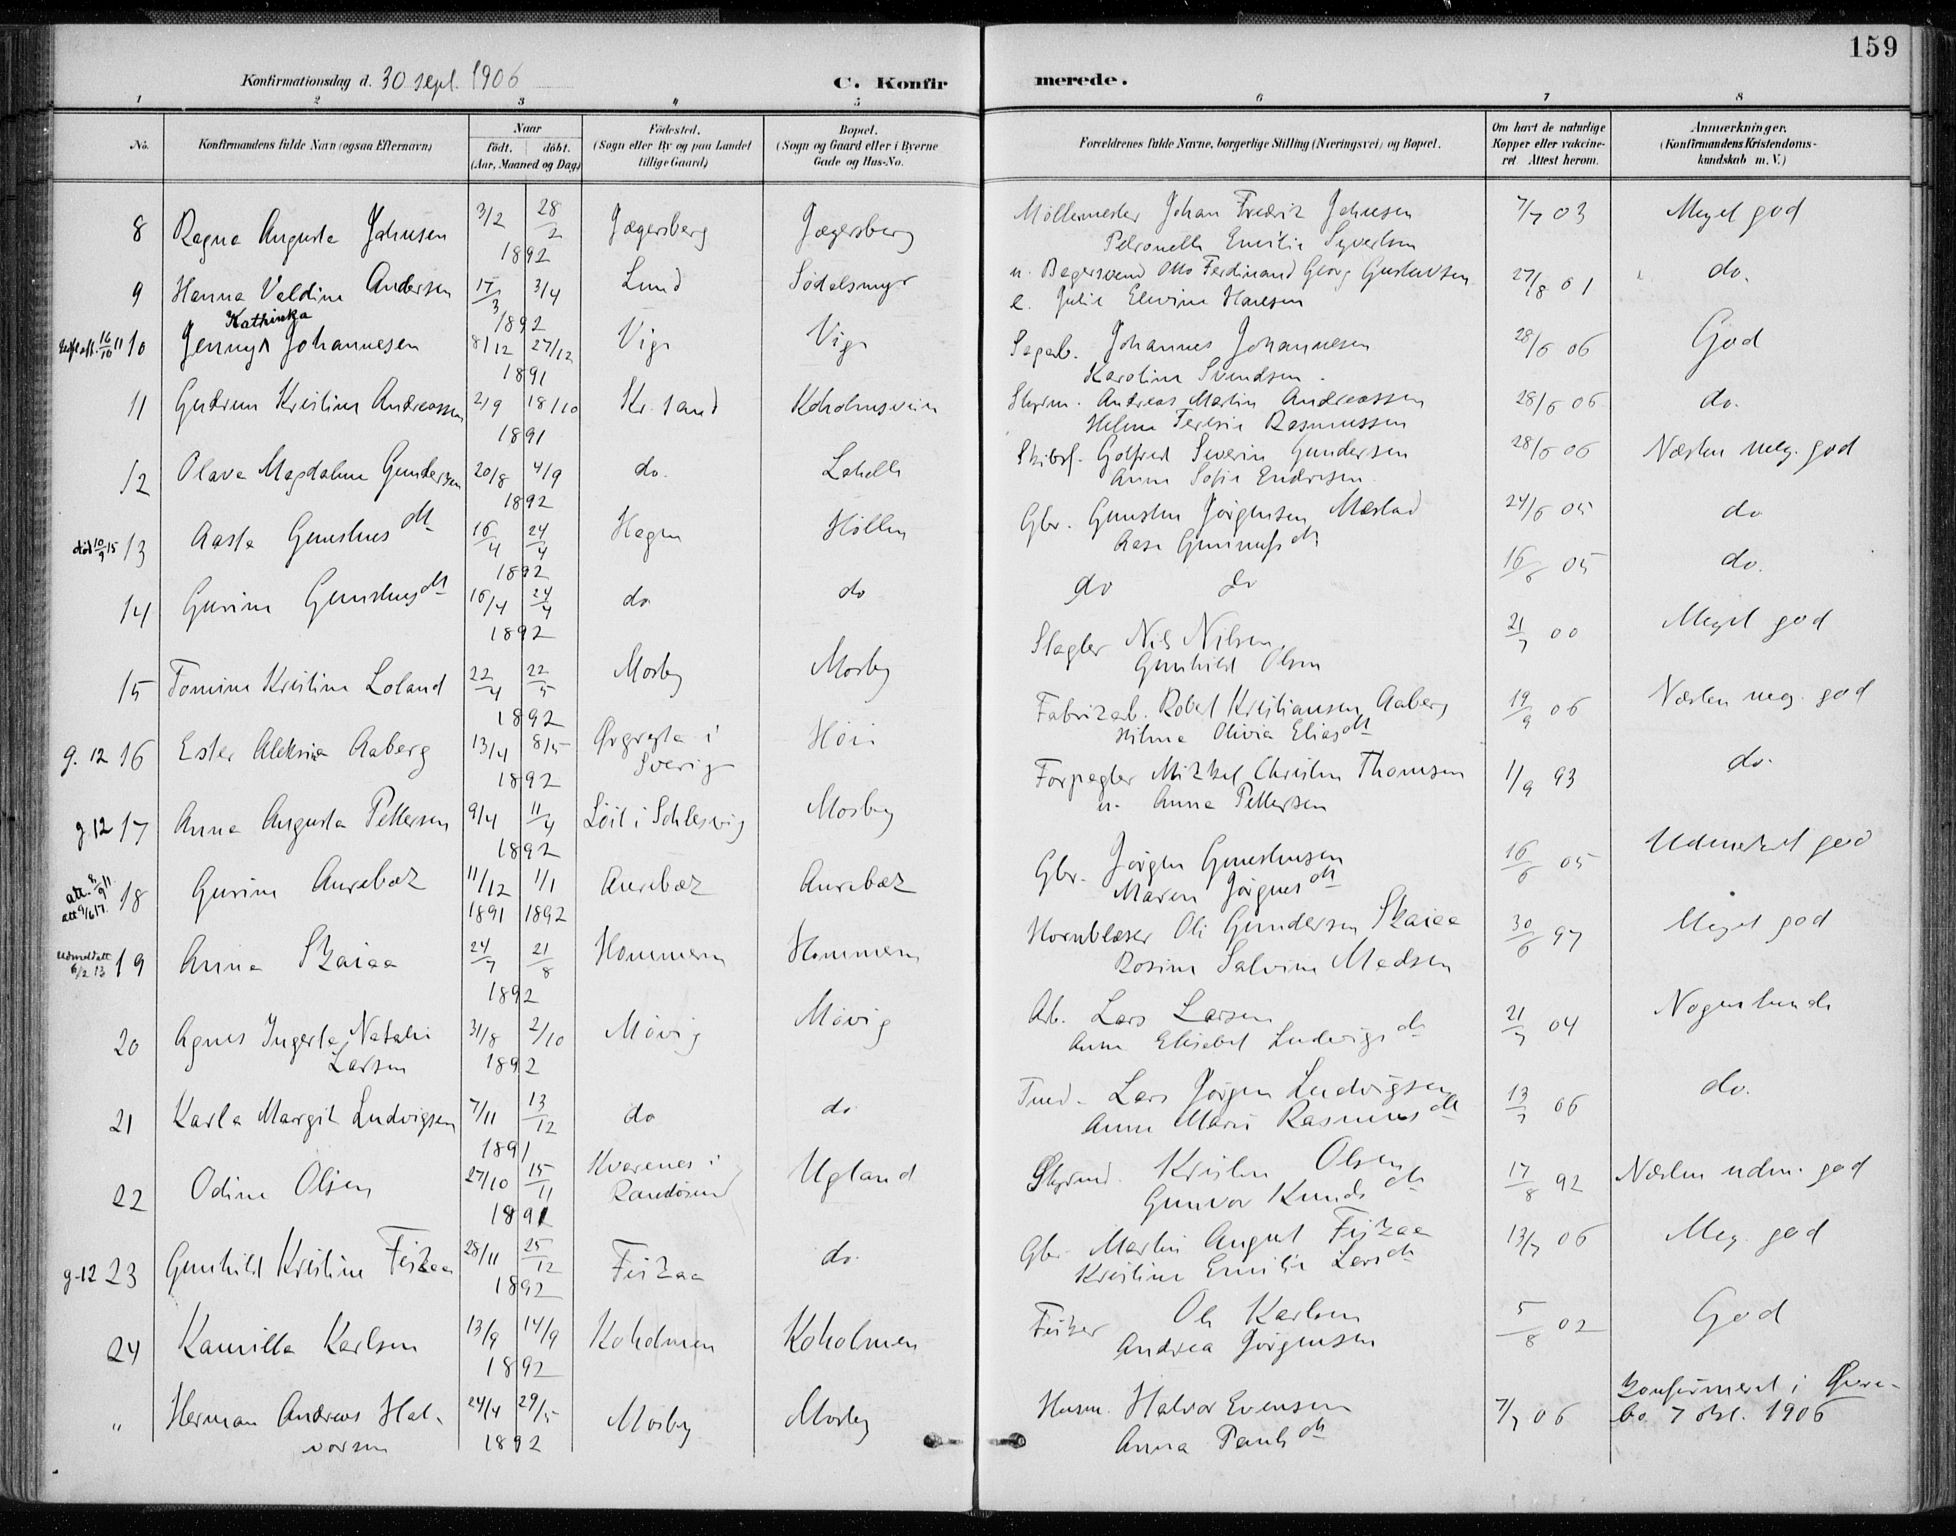 159
Konfirmationsdag d. 30 sept. 1906
C. Konfirmerede.
1 2 3 4 5 6 7 8
No.
Konfirmandens fulde Navn (ogsaa Efternavn)
Naar
født. døbt.
(Aar, Maaned og Dag)
Fødested.
(Sogn eller By og paa Landet
tillige Gaard)
Bopæl.
(Sogn og Gaard eller i Byerne
Gade og Hus-No.
Forældrenes fulde Navne, borgerlige Stilling (Næringsvei) og Bopæl.
Om havt de naturlige
Kopper eller vaccine-
ret Attest herom.
Anmærkninger.
(Konfirmandens Kristendoms-
kundskab m. V.)
8 Ragna Augusta Johnsen 3/2 28/2 1892 Jægersberg Jægersberg Møllermester Johan Fredrik Johnsen 7/7 03 Meget god
Petronelle Emilie Syvertsen
9 Hanna Valdine Andersen 17/3 3/4 1892 Lund Sødalsmyr u. Bagersvend Otto Ferdinand Georg Gustavsen 27/8 01 do.
e. Julie Elevine Hansen
10 Jenny Kathinka Johannesen 8/12 27/12 1891 Vige Vige Sagarb. Johannes Johannesen 28/6 06 God
Karoline Svendsen
11 Gudrun Kristine Andreassen 2/9 18/10 1891 Kr.sand Koholmsveien Styrm. Andreas Martin Andreassen 28/6 06 do.
Helene Teresie Rasmussen
12 Olava Magdalene Gundersen 20/8 4/9 1892 do. Lahelle Skibsf. Gotfred Severin Gundersen 28/6 06 Næsten meg. god
Anne Sofie Endresen
død 10/9 15 13 Aaste Gunstensdtr 16/4 24/4 1892 Hagen Høllen Gbr. Gunsten Jørgensen Mæstad 24/6 05 do
Aase Gunnufsdtr
14 Gurine Gunstensdtr 16/4 24/4 1892 do do do do 16/6 05 do.
15 Tomine Kristine Loland 22/4 22/5 1892 Mosby Mosby Slagter Nils Nilsen 21/7 00 Meget god
Gunhild Olsen
g. 12 16 Ester Aleksia Aaberg 13/4 8/5 1892 Ørgryta i Sverig Høie Fabrikarb. Robert Kristiansen Aaberg 19/9 06 Næsten meg. god
Hilma Olivia Eliasdtr
g. 12 17 Anna Augusta Pettersen 9/4 11/4 1892 Løit i Schleswig Mosby Forpagter Mikkel Christen Thomsen 1/9 93 do.
u. Anna Pettersen
att. 8/9 11. att 9/6 17. 18 Gurine Aurebæk 11/12 1891 1/1 1892 Aurebæk Aurebæk Gbr. Jørgen Gunstensen 16/6 05 Udmerket god
Maren Jørgensdtr
Udmeld att 6/2 13 19 Anna Skaiaa 24/7 21/8 1892 Hommeren Hommeren Hornblæser Ole Gundersen Skaiaa 30/6 97 Meget god
Rosine Salvine Madsen
20 Agnes Ingerte Natalie Larsen 31/8 2/10 1892 Møvig Møvig Arb. Lars Larsen 21/7 04 Nogenlunde
Anne Elisabet Ludvigsdtr
21 Karla Margit Ludvigsen 7/11 13/12 1891 do do Lars Jørgen Ludvigsen 13/7 06 do.
Anne Marie Rasmusdtr
22 Odine Olsen 27/10 15/11 1891 Kvarenes i Randøsund Ugland Styrmd. Kristen Olsen 17/8 92 Næsten udm. god
Gunvor Knudsdtr
g. 12 23 Gunhild Kristine Fiskaa 28/11 25/12 1892 Fiskaa do. Gbr. Martin August Fiskaa 13/7 06 Meg. god
Kristine Emilie Larsdtr
24 Kamilla Karlsen 13/9 14/9 1892 Koholmen Koholmen Fisker Ole Karlsen 5/8 02 God
Andrea Jørgensen
" Herman Andreas Halvorsen 24/4 29/5 1892 Mosby Mosby Husm. Halvor Evensen 7/7 06 Konfirmeret i Øvre-
Anna Paulsdtr bø 7 okt. 1906